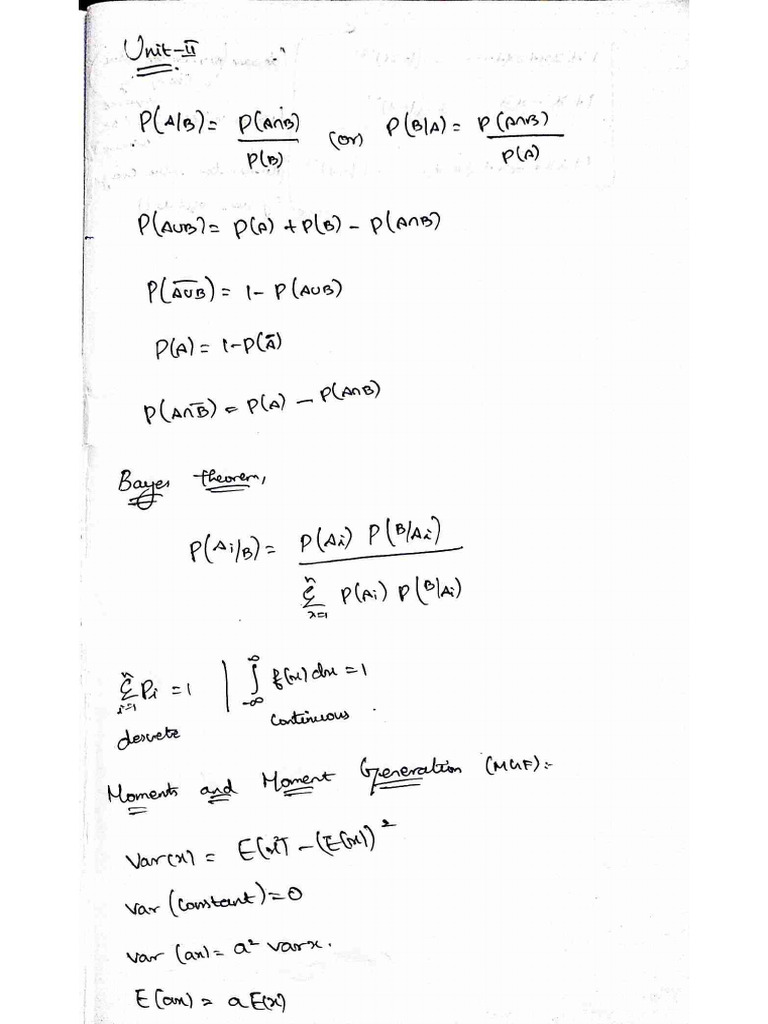 Unit-II
P(A/B) = P(A∩B) / P(B) (or) P(B/A) = P(A∩B) / P(A)
P(A∪B) = P(A) + P(B) - P(A∩B)
P(A̅∪̅B̅) = 1 - P(A∪B)
P(A) = 1-P(Ā)
P(A∩B̅) = P(A) - P(A∩B)
Bayes theorem,
P(Ai/B) = P(Ai) P(B/Ai) / Σⁿᵢ₌₁ P(Ai) P(B/Ai)
Σⁿᵢ₌₁ Pi = 1 | ∫^∞_-∞ f(x) dx = 1
descrete continuous.
Moments and Moment Generation (MGF):-
Var(x) = E(x²) - (E(x))²
var (constant) = 0
var (ax) = a² varx.
E(ax) = a E(x)